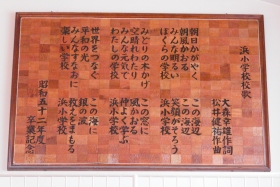 浜小学校校歌
大森幸雄作詞
松井健祐作曲
朝日かがやく この海辺
朝風かおる この海辺
みんな明るい 笑顔がそろう
ぼくらの学校 浜小学校
みどりの木かげ この窓に
空晴れわたり 風かおる
みんな元気で 仲よく学ぶ
わたしの学校 浜小学校
世界をつなぐ この海に
平和の光 銀の波
みんなすなおに 教えをまもる
楽しい学校 浜小学校
昭和五十二年度 卒業記念